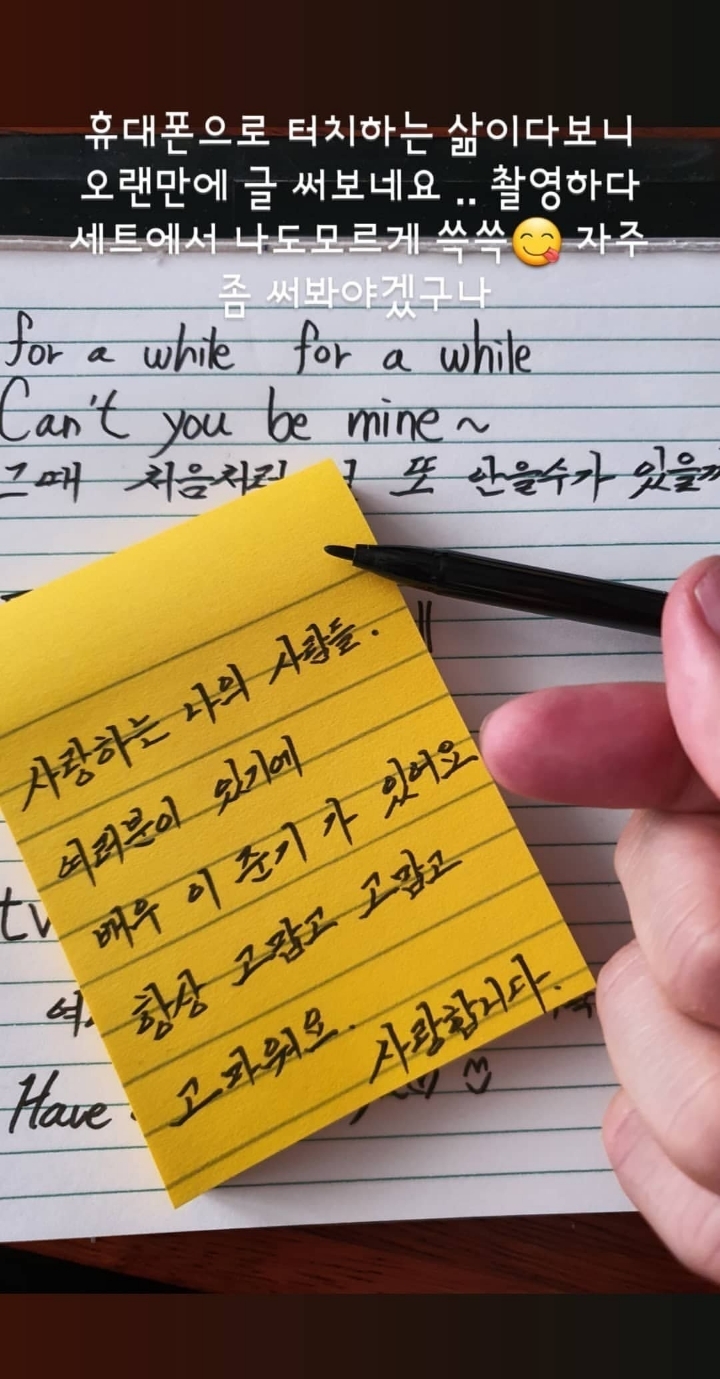 휴대폰으로 터치하는 삶이다보니
오랜만에 글 써보네요 .. 촬영하다
세트에서 나도모르게 쓱쓱😋 자주
좀 써봐야겠구나
for a while for a while
Can't you be mine~
그때 처음처럼 또 안을수가 있을까
사랑하는 나의 사람들.
여러분이 있기에
배우 이 준기 가 있어요
항상 고맙고 고맙고
고마워요. 사랑합니다.
Have